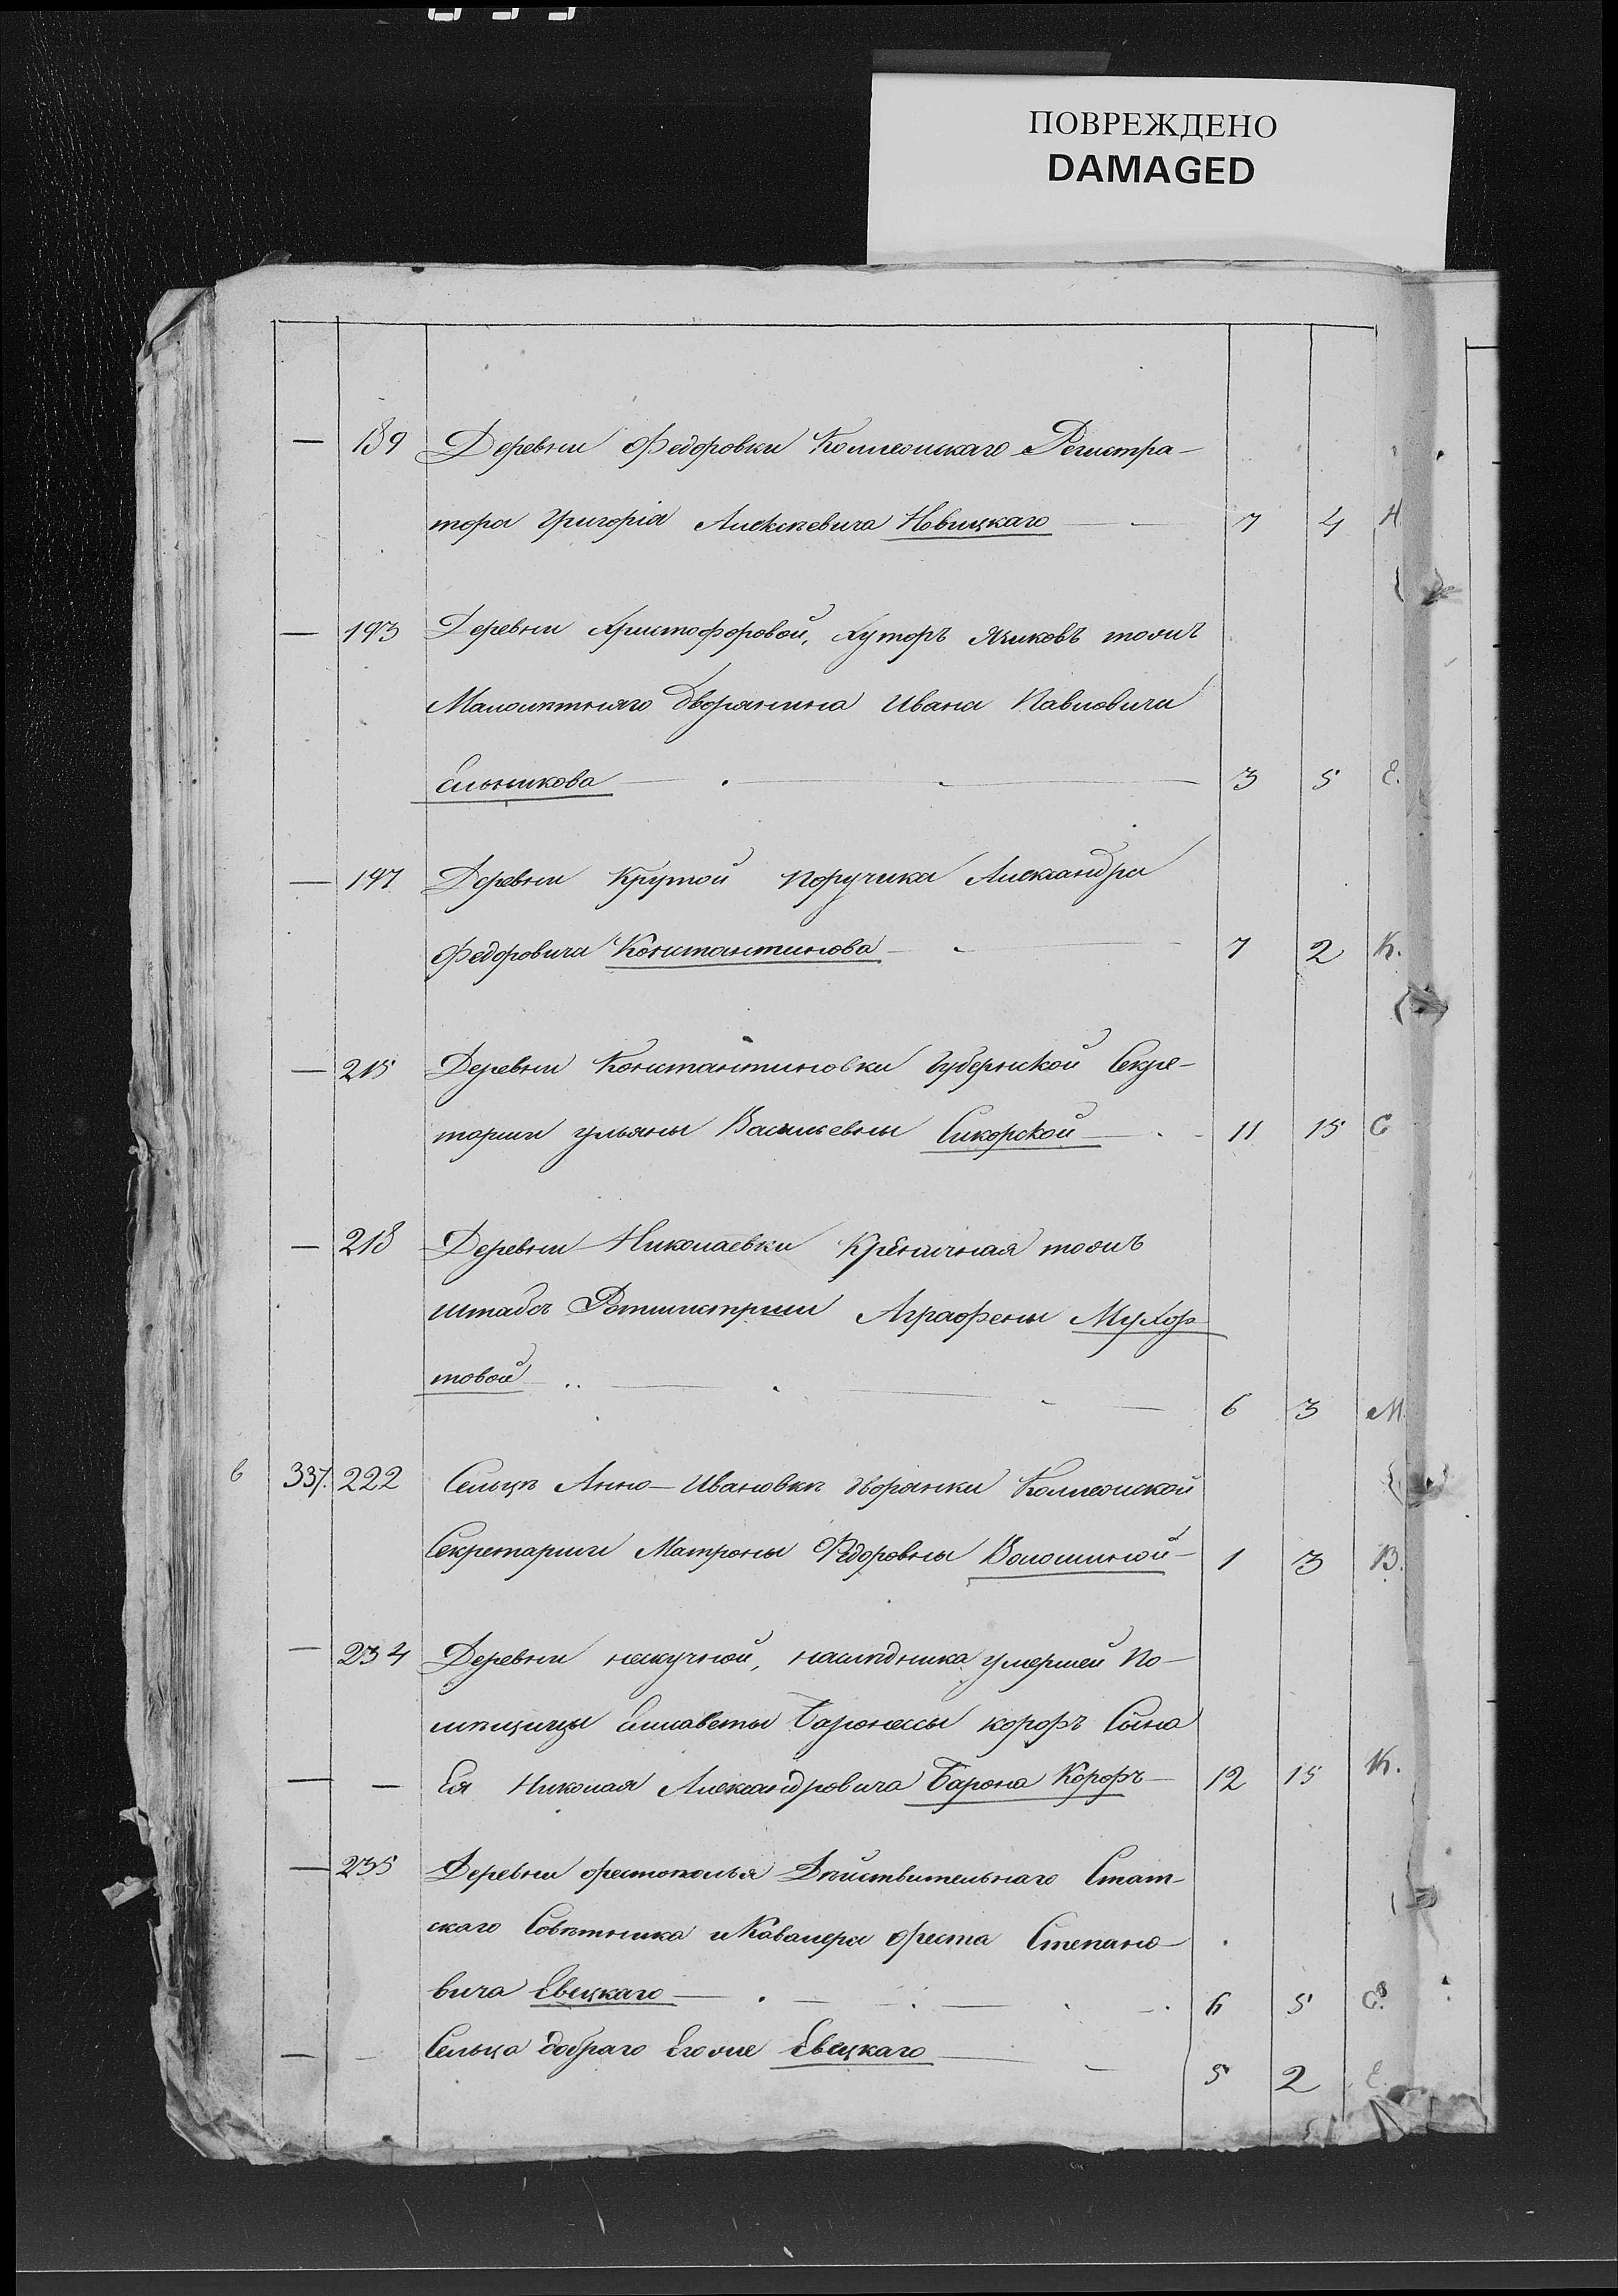 ПОВРЕЖДЕНО
DAMAGED
— 189 Деревни Федоровки Коллежскаго Регистра-
тора Григорія Алексѣевича Новицкаго — 7 4 Н
— 193 Деревни Христофоровой, Хуторъ тожъ
Малолѣтняго дворянина Ивана Павловича
3 5 Е.
— 197 Деревни Крутой Поручика Александра
Федоровича Константинова — 7 2 К.
— 215 Деревни Константиновки Губернской Секре-
тарши Ульяны Васильевны Сикорской — 11 15 С
— 218 Деревни Николаевки Криничная тожъ
штабсъ Ротмистрши Аграфены Мухор
товой — 6 3 М.
6 337. 222 Сельцѣ Анно-Ивановкѣ дворянки Коллежской
Секретарши Матроны Федоровны Волошиной — 1 3 В.
— 234 Деревни нескучной, наслѣдника умершей По-
мѣщицы Елисаветы Баронессы Корфъ Сына
— — Ея Николая Александровича Барона Корфъ — 12 15 К.
— 235 Деревни Орестополья Дѣйствительнаго Стат-
скаго Совѣтника и Кавалера Ореста Степано-
вича Евецкаго — 6 5 Е.
— — Сельца добраго Егоже Евецкаго — 5 2 Е.